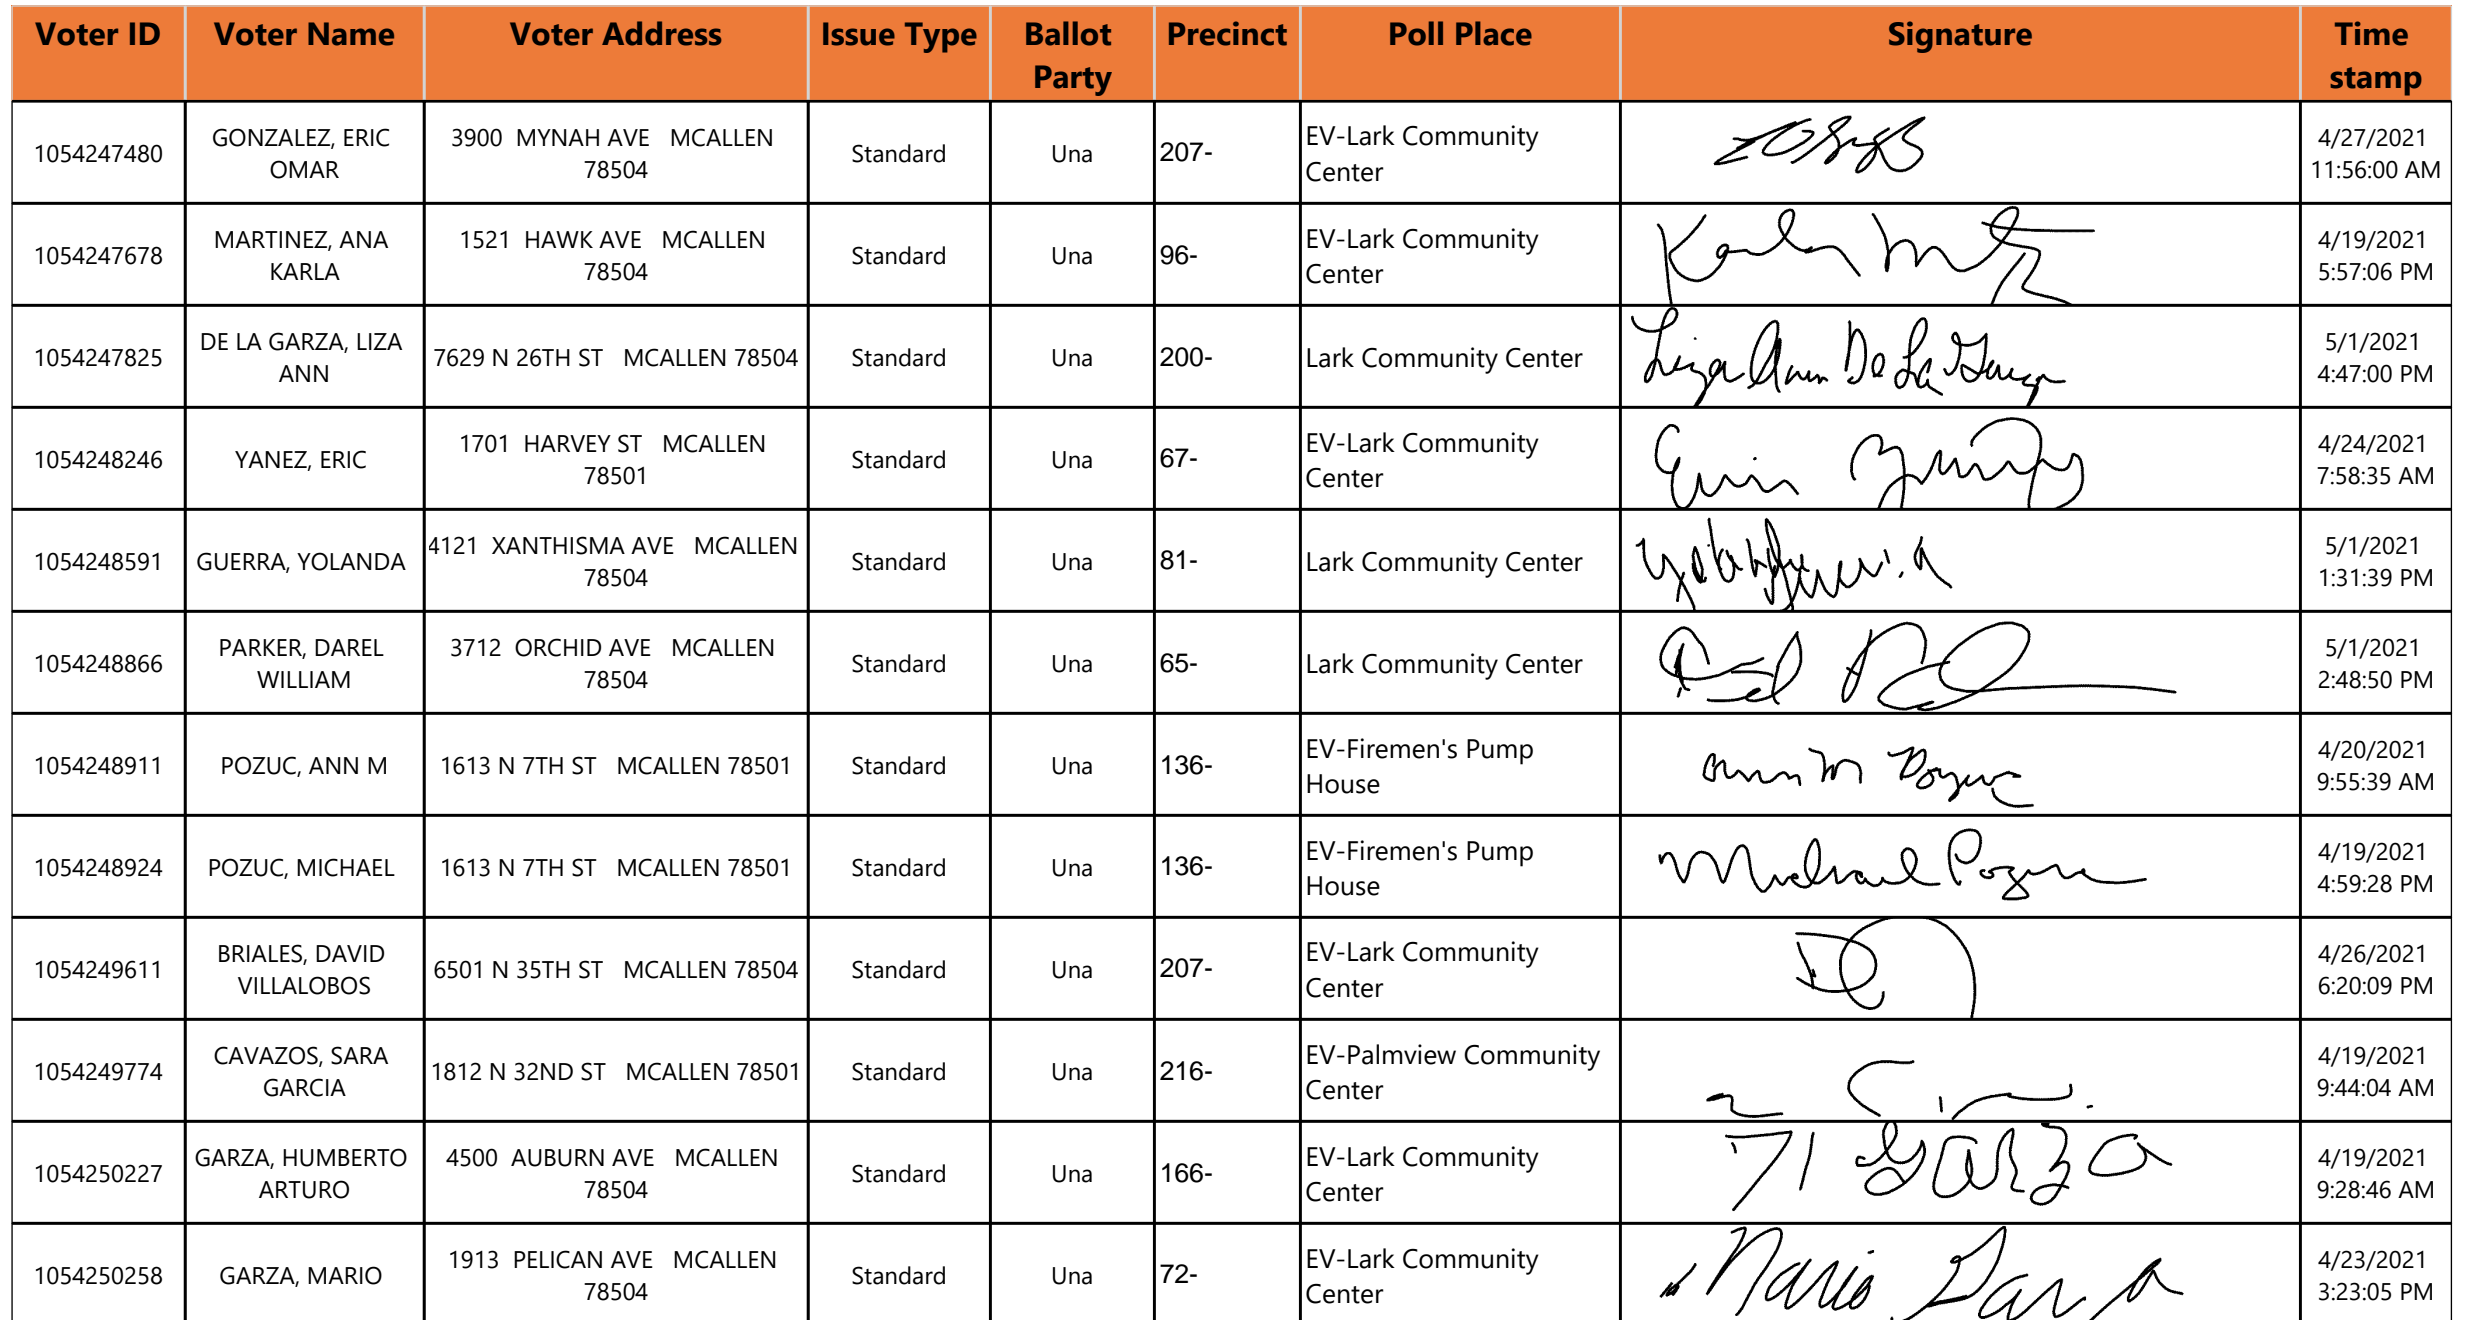 Voter ID Voter Name Voter Address Issue Type Ballot Party Precinct Poll Place Signature Time stamp
1054247480 GONZALEZ, ERIC OMAR 3900 MYNAH AVE MCALLEN 78504 Standard Una 207- EV-Lark Community Center 4/27/2021 11:56:00 AM
1054247678 MARTINEZ, ANA KARLA 1521 HAWK AVE MCALLEN 78504 Standard Una 96- EV-Lark Community Center Karla 4/19/2021 5:57:06 PM
1054247825 DE LA GARZA, LIZA ANN 7629 N 26TH ST MCALLEN 78504 Standard Una 200- Lark Community Center Liza Ann De La Garza 5/1/2021 4:47:00 PM
1054248246 YANEZ, ERIC 1701 HARVEY ST MCALLEN 78501 Standard Una 67- EV-Lark Community Center 4/24/2021 7:58:35 AM
1054248591 GUERRA, YOLANDA 4121 XANTHISMA AVE MCALLEN 78504 Standard Una 81- Lark Community Center 5/1/2021 1:31:39 PM
1054248866 PARKER, DAREL WILLIAM 3712 ORCHID AVE MCALLEN 78504 Standard Una 65- Lark Community Center 5/1/2021 2:48:50 PM
1054248911 POZUC, ANN M 1613 N 7TH ST MCALLEN 78501 Standard Una 136- EV-Firemen's Pump House Ann M Pozuc 4/20/2021 9:55:39 AM
1054248924 POZUC, MICHAEL 1613 N 7TH ST MCALLEN 78501 Standard Una 136- EV-Firemen's Pump House Michael Pozuc 4/19/2021 4:59:28 PM
1054249611 BRIALES, DAVID VILLALOBOS 6501 N 35TH ST MCALLEN 78504 Standard Una 207- EV-Lark Community Center 4/26/2021 6:20:09 PM
1054249774 CAVAZOS, SARA GARCIA 1812 N 32ND ST MCALLEN 78501 Standard Una 216- EV-Palmview Community Center 4/19/2021 9:44:04 AM
1054250227 GARZA, HUMBERTO ARTURO 4500 AUBURN AVE MCALLEN 78504 Standard Una 166- EV-Lark Community Center Garza 4/19/2021 9:28:46 AM
1054250258 GARZA, MARIO 1913 PELICAN AVE MCALLEN 78504 Standard Una 72- EV-Lark Community Center Mario Garza 4/23/2021 3:23:05 PM